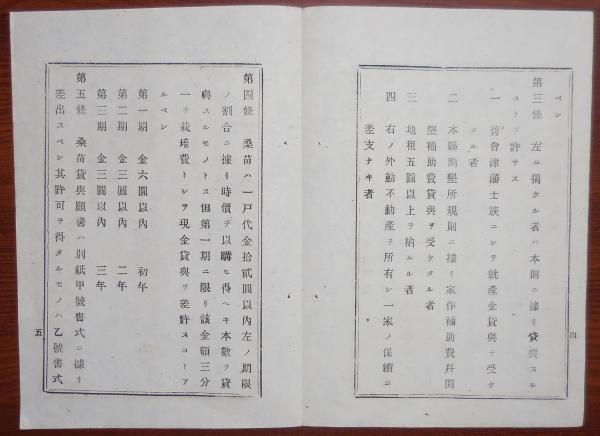 ベシ
第三條 左ニ揭クル者ハ本則ニ據リ貸與スル
コトヲ許サス
一 舊會津藩士族ニシテ就產金貸與ヲ受ケ
タル者
二 本縣開墾所規則ニ據リ家作補助費幷開
墾補助費貸與ヲ受ケタル者
三 地租五圓以上ヲ納ムル者
四 右ノ外動不動產ヲ所有シ一家ノ保續ニ
差支ナキ者
四
第四條 桑苗ハ一戶代金拾貳圓以內左ノ期限
ノ割合ニ據リ時價ヲ以購ヒ得ヘキ本數ヲ貸
與スルモノトス但第一期ニ限リ該金額三分
一ヲ栽培費トシテ現金貸與ヲ差許スコトア
ルベシ
第一期 金六圓以內 初年
第二期 金三圓以內 二年
第三期 金三圓以內 三年
第五條 桑苗貸與願書ハ別紙甲號書式ニ據リ
差出スベシ其許可ヲ得タルモノハ乙號書式
五